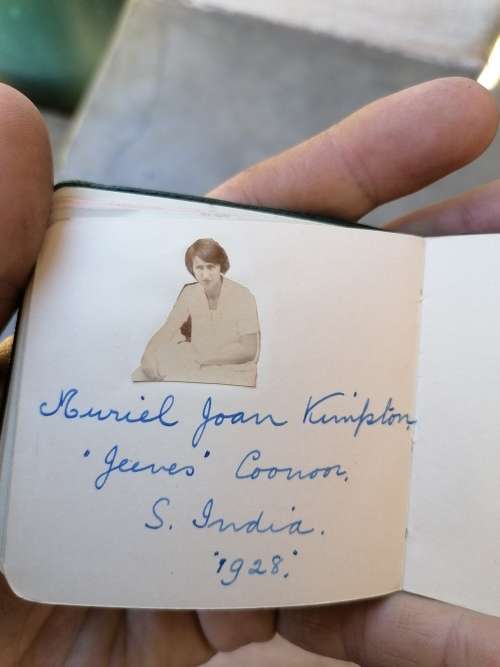 Muriel Joan Kimpton
"Jeeves" Coonoor.
S. India.
"1928."